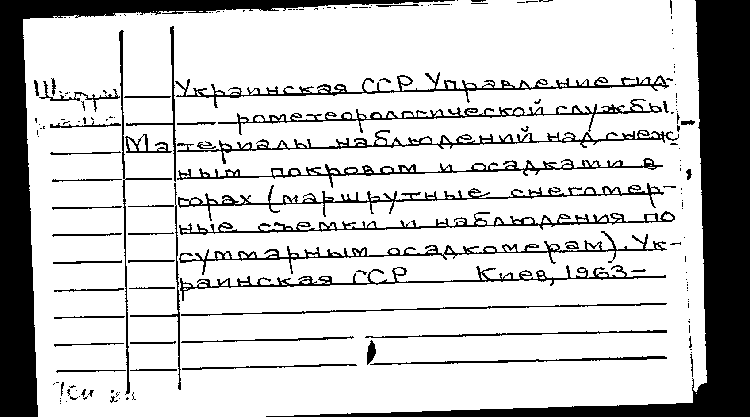 Украинская ССР. Управление гид-
рометеорологической службы.
Материалы наблюдений над снеж-
ным покровом и осадками в
горах (маршрутные снегомер-
ные съемки и наблюдения по
суммарным осадкомерам). Ук-
раинская ССР Киев, 1963-